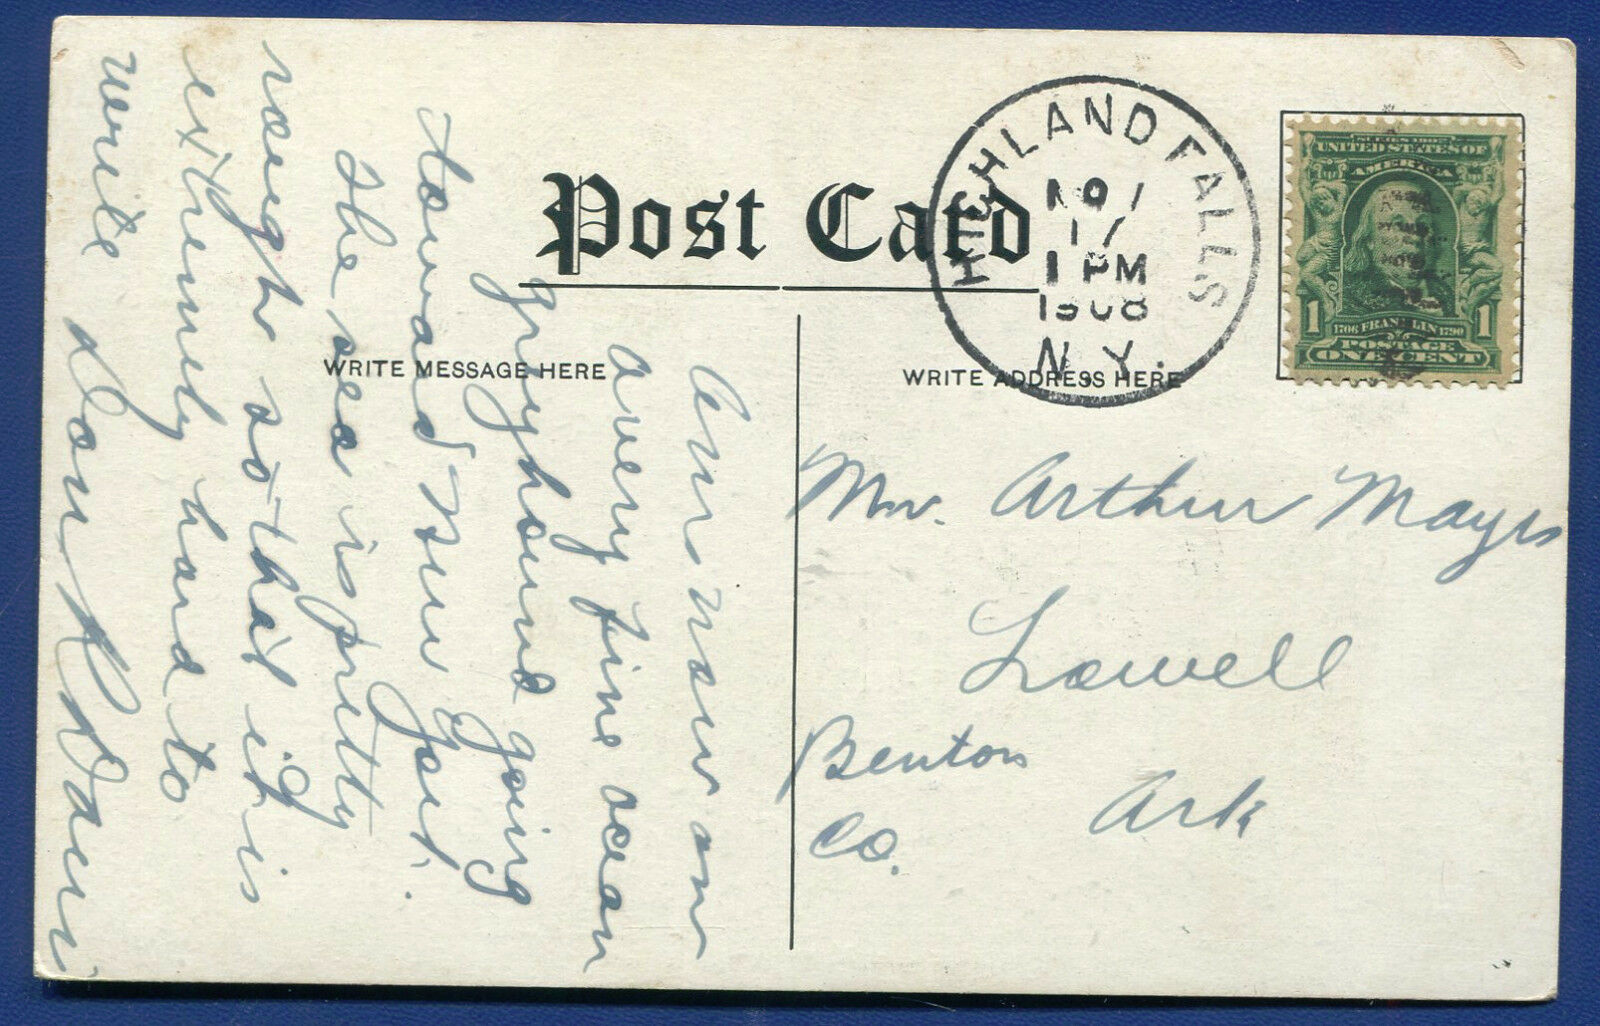 Post Card
HIGHLAND FALLS
NOV
17
1 PM
1908
N. Y.
SERIES 1902
UNITED STATES OF
AMERICA
1 1
1706 FRANKLIN 1790
POSTAGE
ONE CENT
WRITE MESSAGE HERE
WRITE ADDRESS HERE
Am now on
a very fine ocean
greyhound going
toward New York.
The sea is pretty
rough so that it is
extremely hard to
write
Mr. Arthur Mayes
Lowell
Benton
Co.
Ark